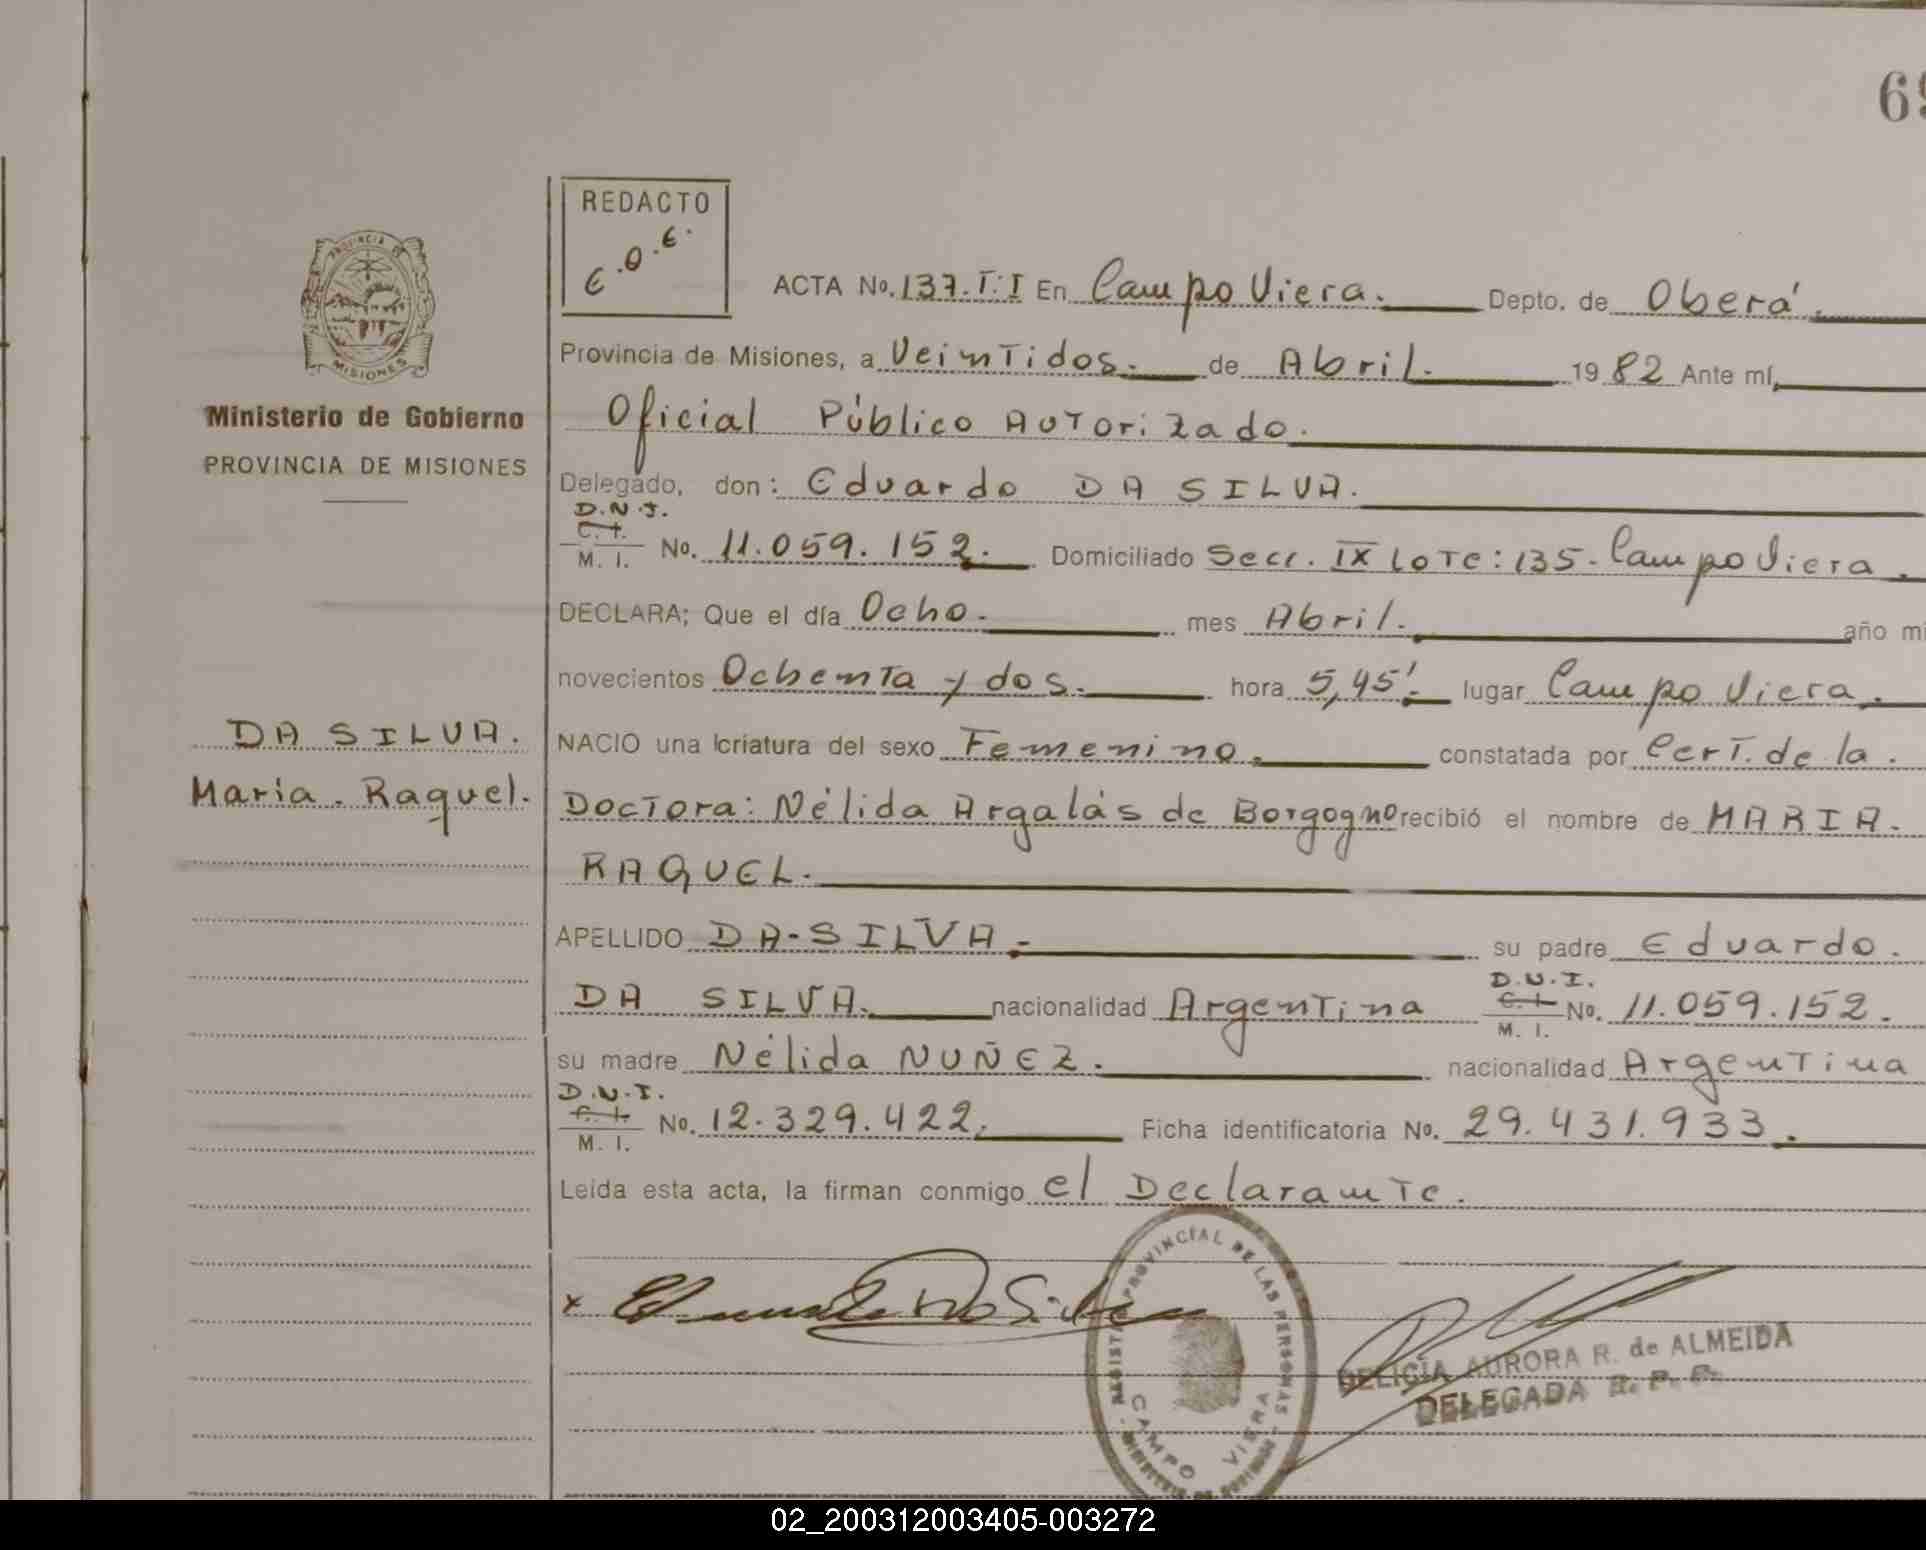 69
REDACTO
E.O.E.
PROVINCIA DE
MISIONES
Ministerio de Gobierno
PROVINCIA DE MISIONES
ACTA No. 137. T: I En Campo Viera. Depto. de Oberá.
Provincia de Misiones, a Veintidos. de Abril. 1982 Ante mí,
Oficial Público Autorizado.
Delegado, don: Eduardo DA SILVA.
D.N.I.
C. I.
M. I. No. 11.059.152. Domiciliado Secc. IX Lote: 135- Campo Viera.
DECLARA; Que el día Ocho. mes Abril. año mi
novecientos Ochenta y dos. hora 5,45'. lugar Campo Viera.
DA SILVA.
María. Raquel.
NACIO una criatura del sexo Femenino. constatada por Cert. de la.
Doctora: Nélida Argalás de Borgogno recibió el nombre de MARIA.
RAQUEL.
APELLIDO DA-SILVA. su padre Eduardo.
DA SILVA. nacionalidad Argentina D.N.I. C. I. M. I. No. 11.059.152.
su madre Nélida NUÑEZ. nacionalidad Argentina
D.N.I.
C. I.
M. I. No. 12.329.422. Ficha identificatoria No. 29.431.933.
Leída esta acta, la firman conmigo el Declarante.
x
PROVINCIAL DE LAS PERSONAS
CAMPO VIERA
DELICIA AURORA R. de ALMEIDA
DELEGADA R. P. P.
02_200312003405-003272